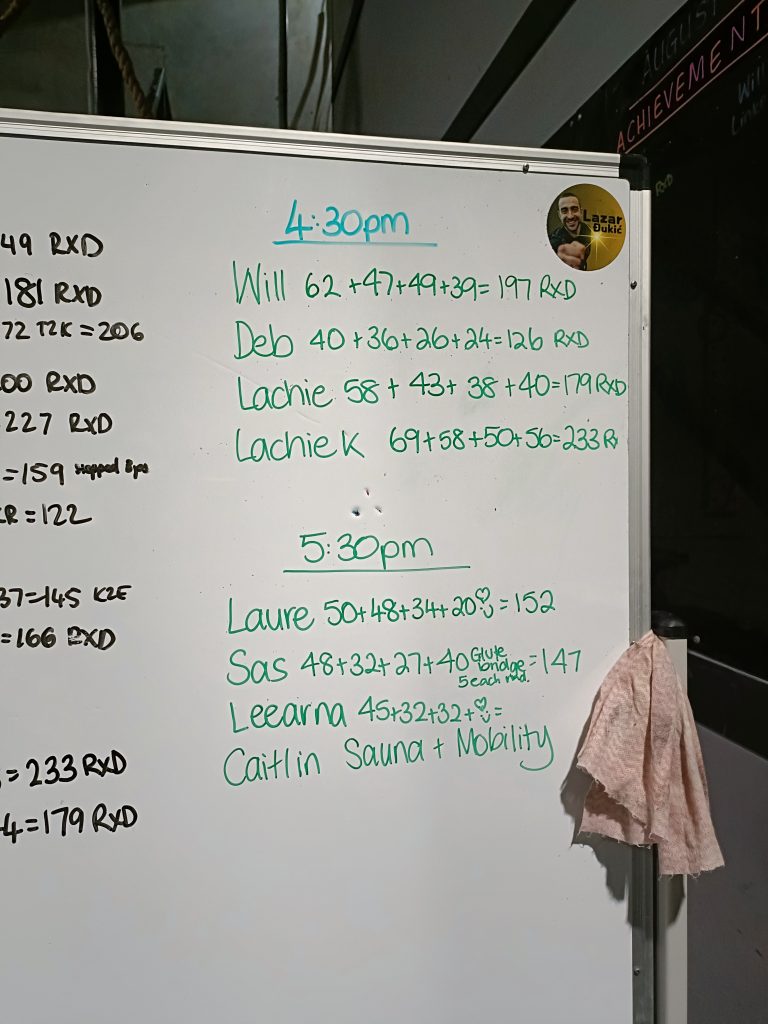 AUGUST
ACHIEVEMENT
Will
RXD
Lazar
Đukić
49 RXD
181 RXD
72 T2K = 206
00 RXD
227 RXD
= 159
= 122
37=145 K2E
= 166 RXD
= 233 RXD
4=179 RXD
4:30pm
Will 62 +47+49+39= 197 RXD
Deb 40 +36+26+24=126 RXD
Lachie 58 + 43+ 38 +40=179 RXD
Lachie K 69+58+50+56=233 Rx
5:30pm
Laure 50+48+34+20♡= 152
Sas 48+32+27+40 Glute bridge 5 each rnd. =147
Leearna 45+32+32+♡=
Caitlin Sauna + Mobility